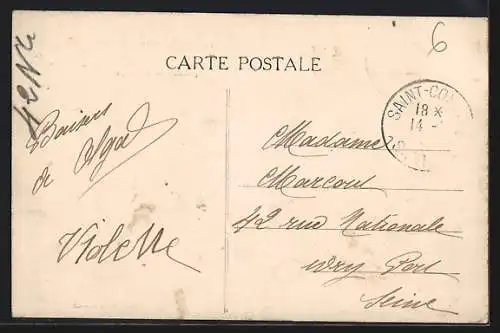 6
CARTE POSTALE
SAINT-CO
18 *
14 -
Baisers
de Olga
Violette
Madame
Marcoul
42 rue Nationale
ivry Port
Seine